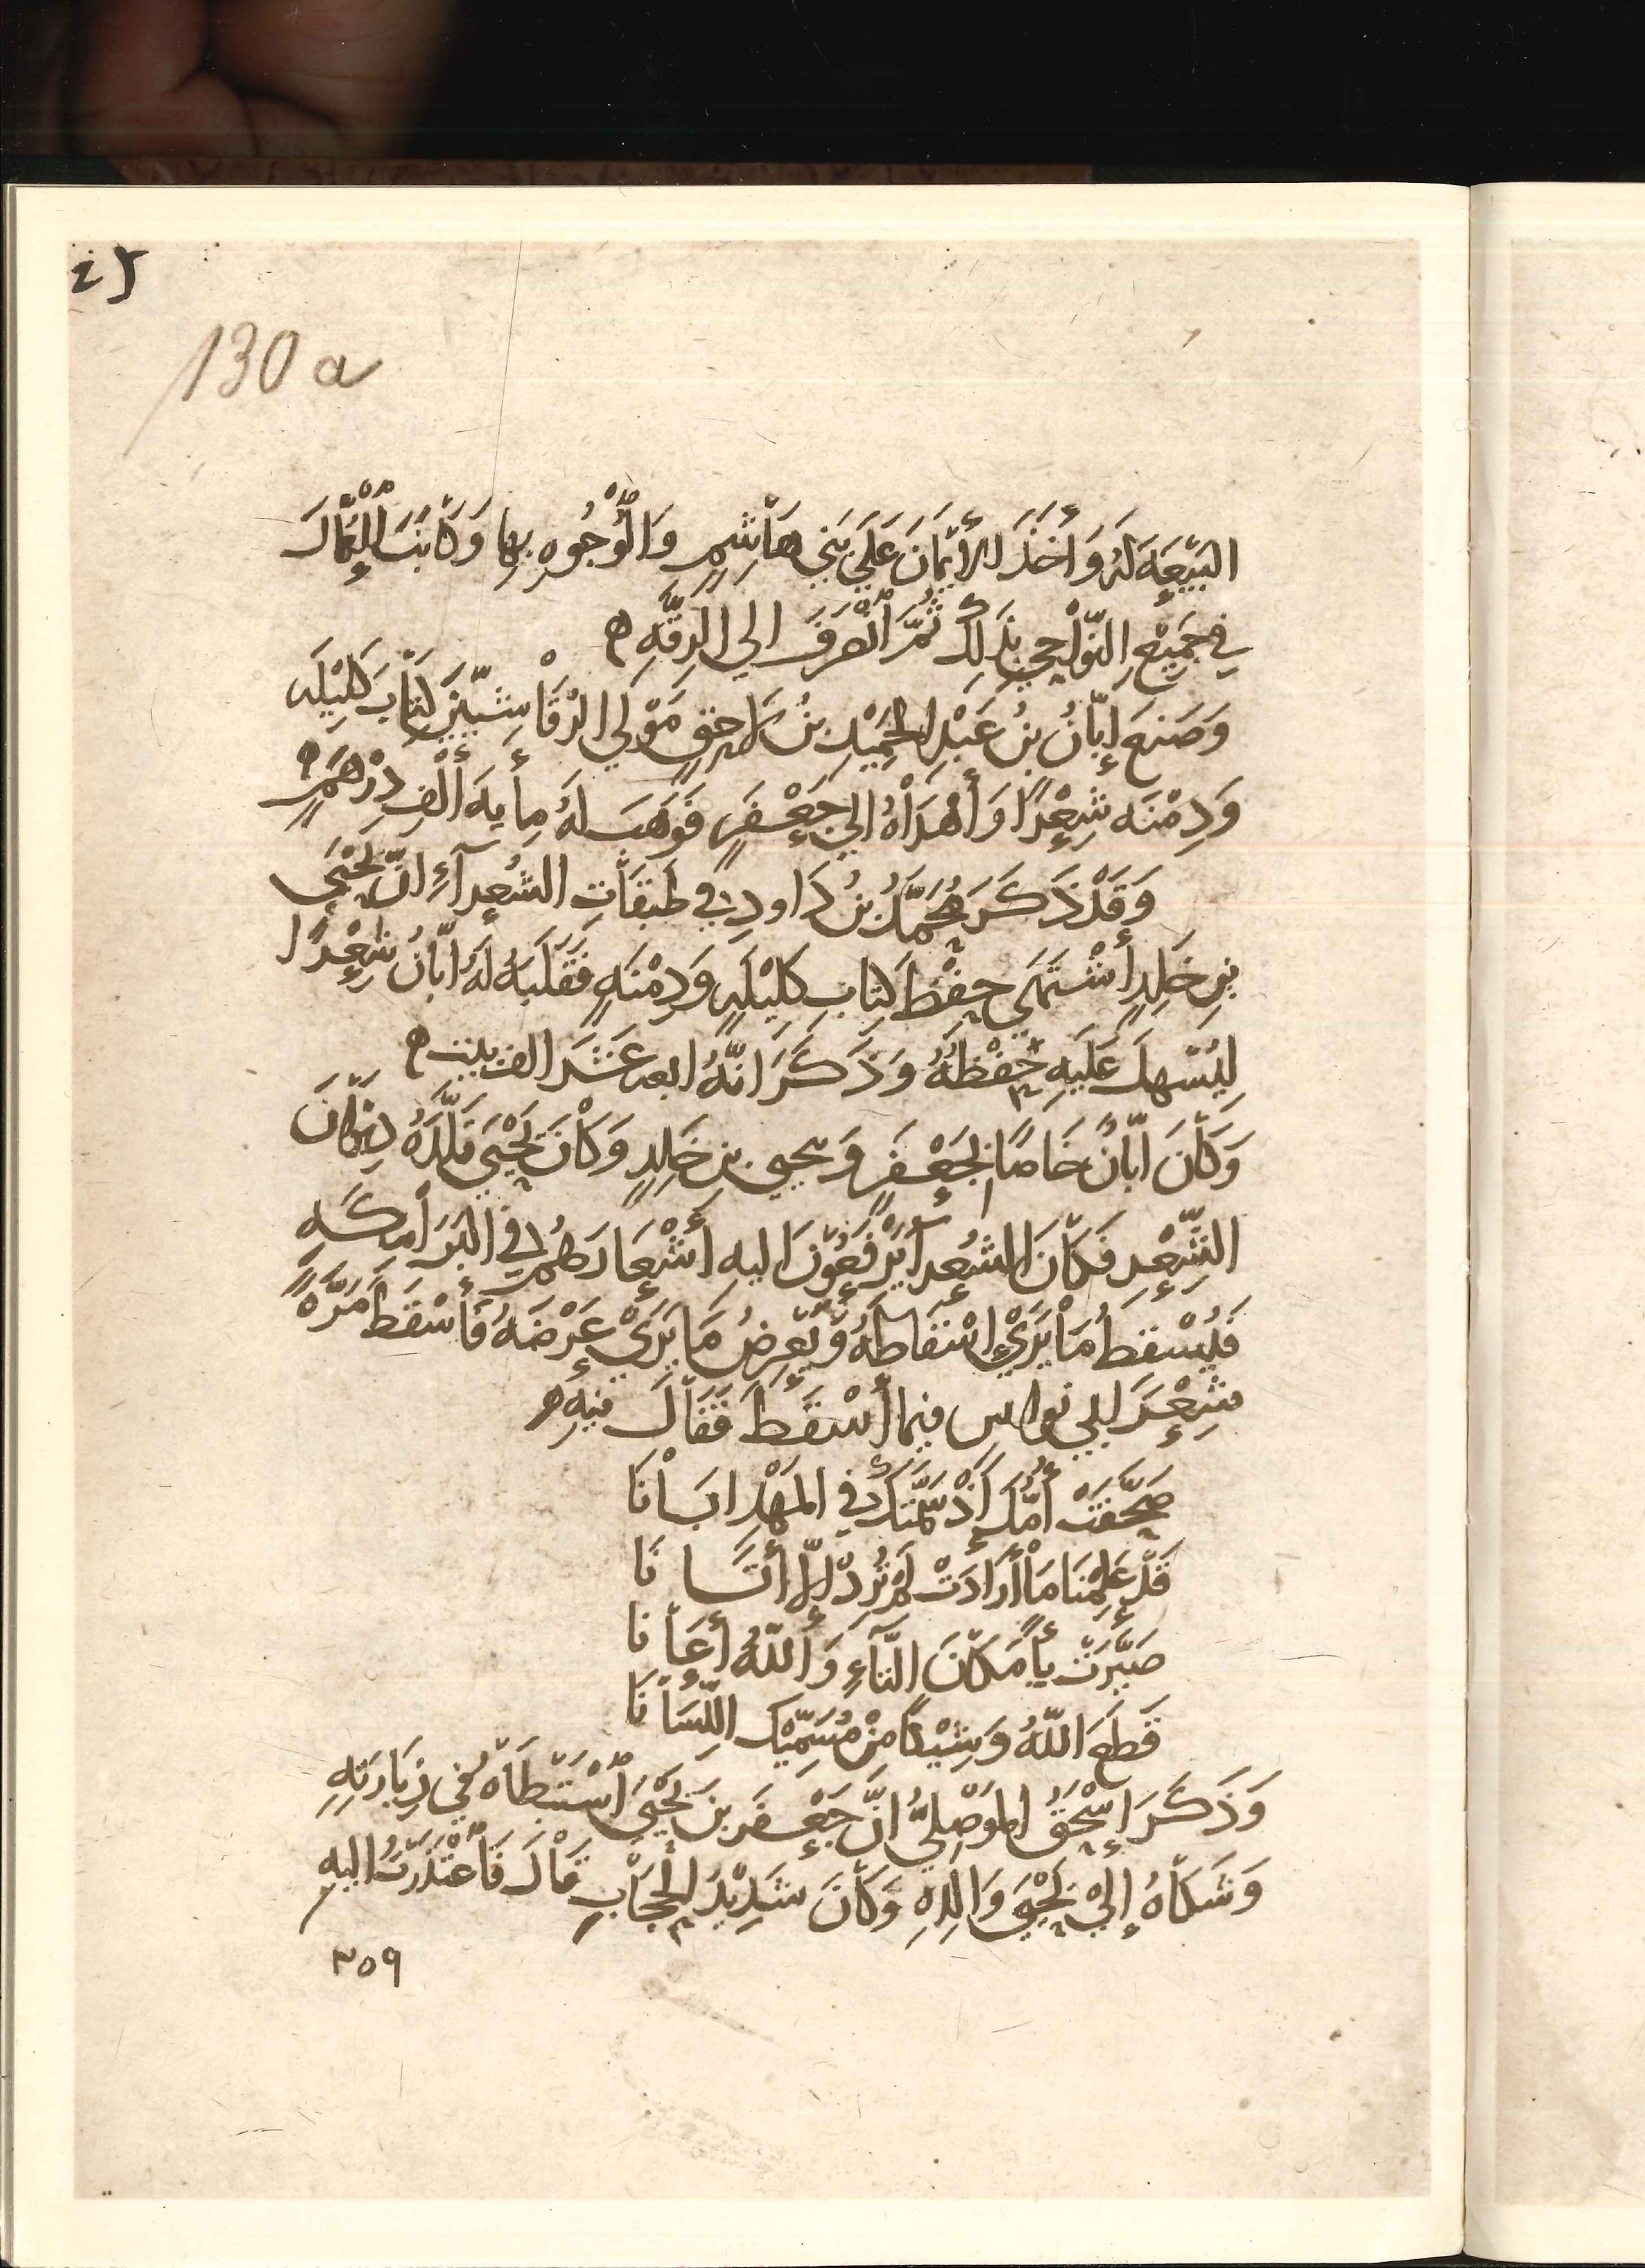 130 a
البَيْعَةَ لَهُ وَأَخَذَ الأَيْمَانَ عَلَي بَنِي هَاشِمٍ وَالْوُجُوهِ بِهَا وَكَاتَبَ الْعُمَّالَ
فِي جَمِيْعِ النَّوَاحِي بِذَلِكَ ثُمَّ اَنْصَرَفَ الي الرَقَّهِ ه
وَصَنَعَ إِبَّانُ بنُ عَبْدِ الحَمِيْدِ بنُ لاحِقٍ مَوْلَي الرَّقَاشِيّيْنَ كِتَابَ كَلِيْلَه
وَدِمْنَه شِعْرًا وَأَهْدَاْهُ الي جَعْفَرٍ فَوَهَبَ لَهُ مِأيه أَلْفِ دِرْهَمٍ ه
وَقَدْ ذَكَرَ مُحَمَّدُ بنُ دَاود فِي طَبَقَاتِ الشُعِرآءِ انّ يَحْيَي
بنِ خَلِدٍ أَشْتَهَي حِفْظَ كِتَابِ كَلِيْلَهٍ وَدِمْنَهٍ فَقَلَبَهُ لَهُ ابَّانُ شِعْرًا
لِيُسْهِلَ عَلَيهِ حِفْظَهُ وَذَكَرَ انّهُ ابعه عَشَرَ الف بيت ه
وَكَانَ ابَّانُ خَاصًا بِجَعْفَرٍ وَيحيي بن خَلِدٍ وَكَانَ يَحْيَي قَلَّدَهُ دِيْوَانَ
الشِّعْرِ فَكَانَ الشُعِرآ يَرْفَعُوْنَ اليهِ أَشْعَارَهُم في البَرَامِكَهِ
فَيُسْقِطُ مَا يَرَيْ إِسْقَاطَهُ وَيَعْرِضُ مَا يَرَيْ عَرْضَهُ فَأَسْقَطَ مَرَّهً
شِعْرَ ابي نواس فيما أَسْقَطَ فَقَالَ فِيْهِ ه
صَحَّفَتْ أُمُّكَ إِذْ سَمَّتْكَ فِي المَهْدِ ابَانَا
قَدْ عَلِمْنَا مَا أَرَادَتْ لَمْ تُرِدْ إِلاّ أَتَانَا
صَيَّرَتْ بَأً مَكَانَ التَّاءِ وَاللّهُ أَعَانَا
قَطَعَ اللّهُ وَشِيْكًا مِنْ مُسَمِّيْكَ اللِّسَانَا
وَذَكَرَ إِسْحَقُ المَوْصِلِيُّ انَّ جَعْفَر بنَ يَحْيَي اَسْتَبْطَاهُ فِي زِيَارَتِهِ
وَشَكَاهُ إِلَيْ يَحْيَي وَالِدِهِ وَكَانَ شَدِيْدَ الحِجَابِ قَالَ فَاَعْتَذَرْتُ اليهِ
٣٥٩